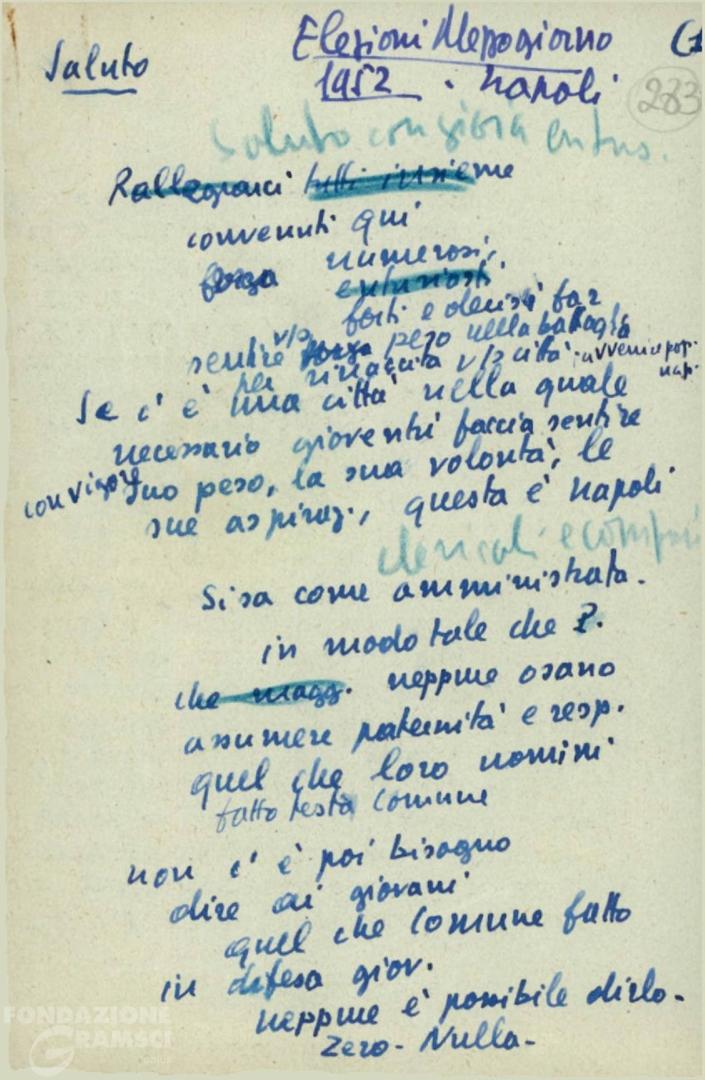 Elezioni Mezzogiorno (1
Saluto
1952 . Napoli
233
Saluto con gioia entus.
Rallegrarci tutti insieme
convenuti qui
forza numerosi,
entusiasti,
forti e decisi far
sentire v/s forza peso nella battaglia
per rinascita v/s città. avvenire pop. nap.
Se c'è una città nella quale
necessario gioventù faccia sentire
con vigore suo peso, la sua volontà, le
sue aspiraz., questa è Napoli
clericali e
Si sa come amministrata.
in modo tale che
che magg. neppure osano
assumere paternità e resp.
quel che loro uomini
fatto testa Comune
non c'è poi bisogno
dire ai giovani
quel che Comune fatto
in difesa giov.
neppure è possibile dirlo.
Zero - Nulla -
FONDAZIONE
GRAMSCI